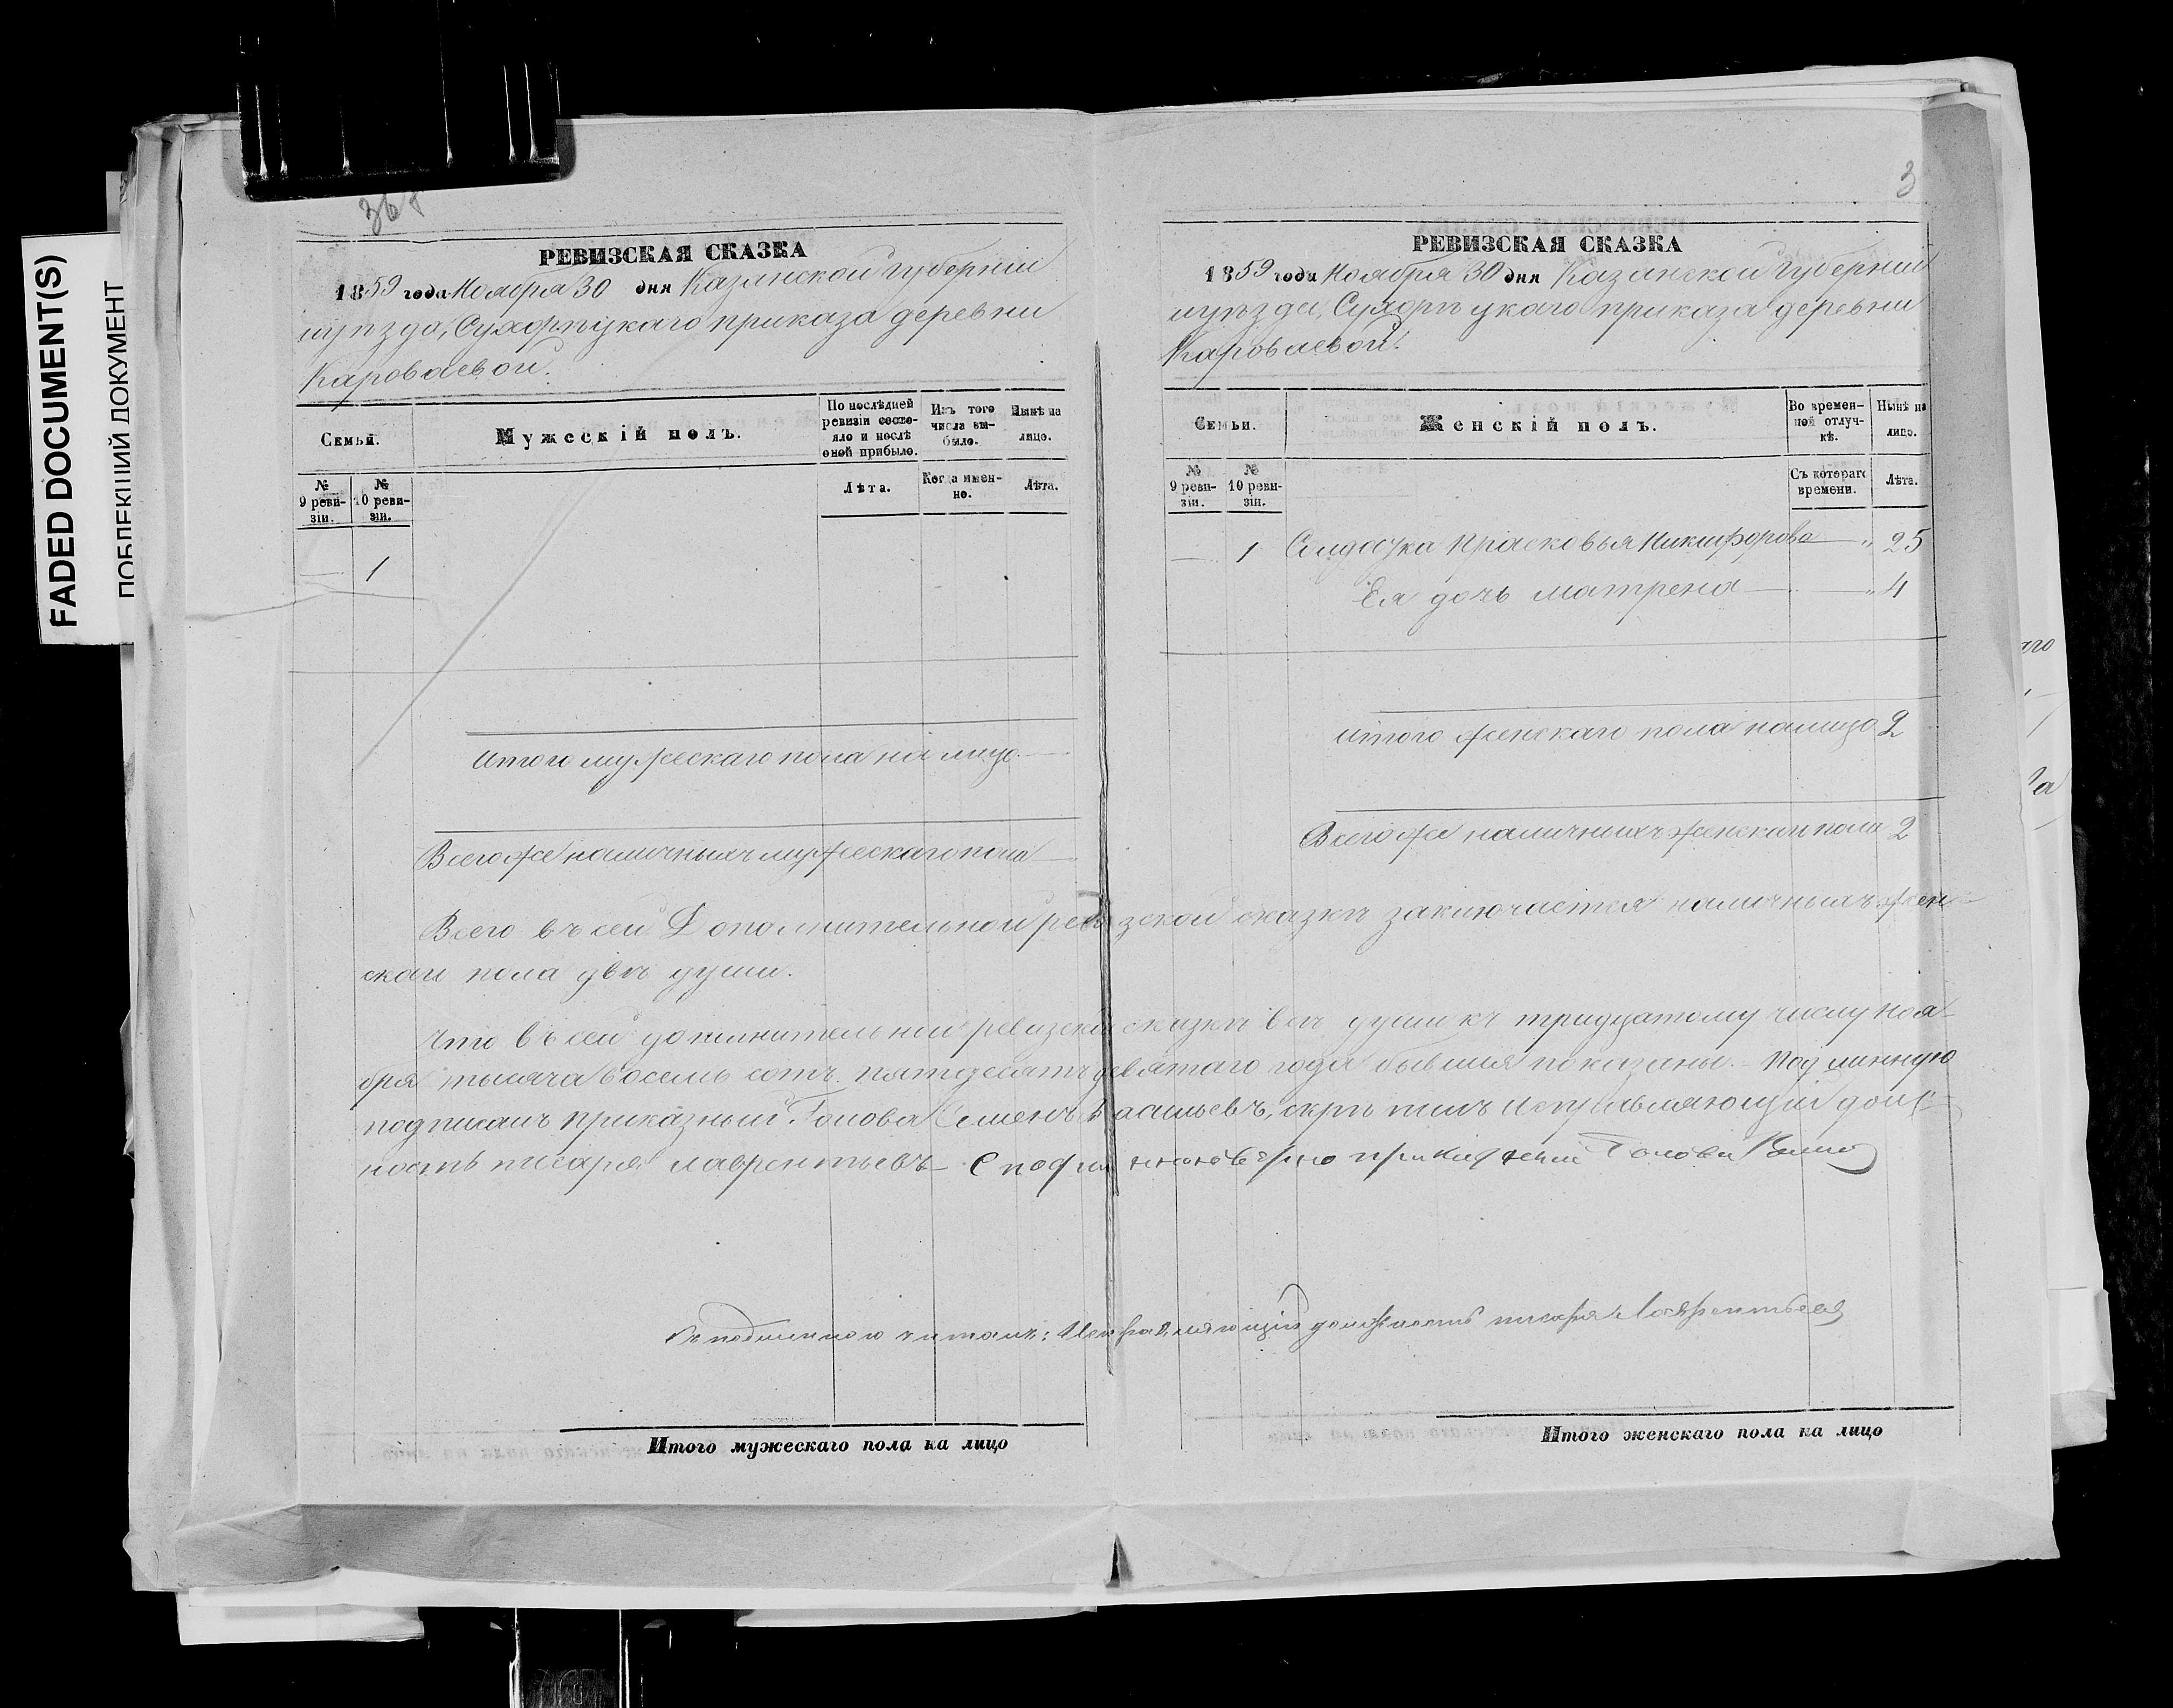 FADED DOCUMENT(S)
ПОБЛЕКШИЙ ДОКУМЕНТ
368
РЕВИЗСКАЯ СКАЗКА
1859 года Ноября 30 дня Казанской губерніи
и уѣзда, Сухорѣцкаго приказа деревни
Короваевой.
Семьи.
Мужескій полъ.
По послѣдней ревизіи состояло и послѣ оной прибыло.
Изъ того числа выбыло.
Нынѣ на лицо.
№ 9 ревизіи.
№ 10 ревизіи.
Лѣта.
Когда именно.
Лѣта.
— 1
Итого мужескаго пола на лицо —
Всего же наличныхъ мужескаго пола —
3
РЕВИЗСКАЯ СКАЗКА
1859 года Ноября 30 дня Казанской губерніи
и уѣзда, Сухорѣцкаго приказа деревни
Короваевой.
Семьи.
Женскій полъ.
Во временной отлучкѣ.
Нынѣ на лицо.
№ 9 ревизіи.
№ 10 ревизіи.
Съ котораго времени.
Лѣта.
— 1 Солдатка Прасковья Никифорова — „ 25
Ея дочь Матрена — „ 4
Итого женскаго пола на лицо 2
Всего же наличныхъ женскаго пола 2
Всего въ сей Дополнительной ревизской сказкѣ заключается наличныхъ жен-
скаго пола двѣ души.
Что въ сей дополнительной ревизской сказкѣ всѣ души къ тридцатому числу Ноя-
бря тысяча восемь сотъ пятьдесятъ девятаго года бывшія показаны. – Подлинную
подписалъ приказный Голова Семенъ Васильевъ, скрѣпилъ Исправляющій долж-
ность писаря Лаврентьевъ – С подлинною верно приказный Голова
Съ подлинною читалъ: Исправляющій должность писаря Лаврентьевъ
Итого мужескаго пола на лицо
Итого женскаго пола на лицо